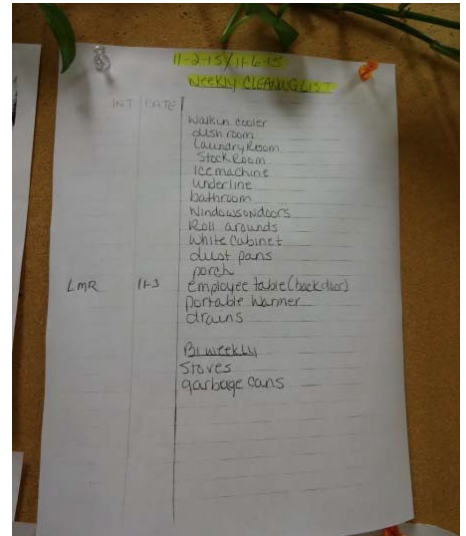 11-2-15/11-6-15
Weekly CLEANING LIST
INT DATE
Walkin cooler
dish room
Laundry Room
Stock Room
Ice machine
underline
bathroom
Windows on doors
Roll arounds
White Cabinet
dust pans
porch
LMR 11-3 employee table (back door)
Portable Warmer
drains
Bi weekly
Stoves
garbage cans